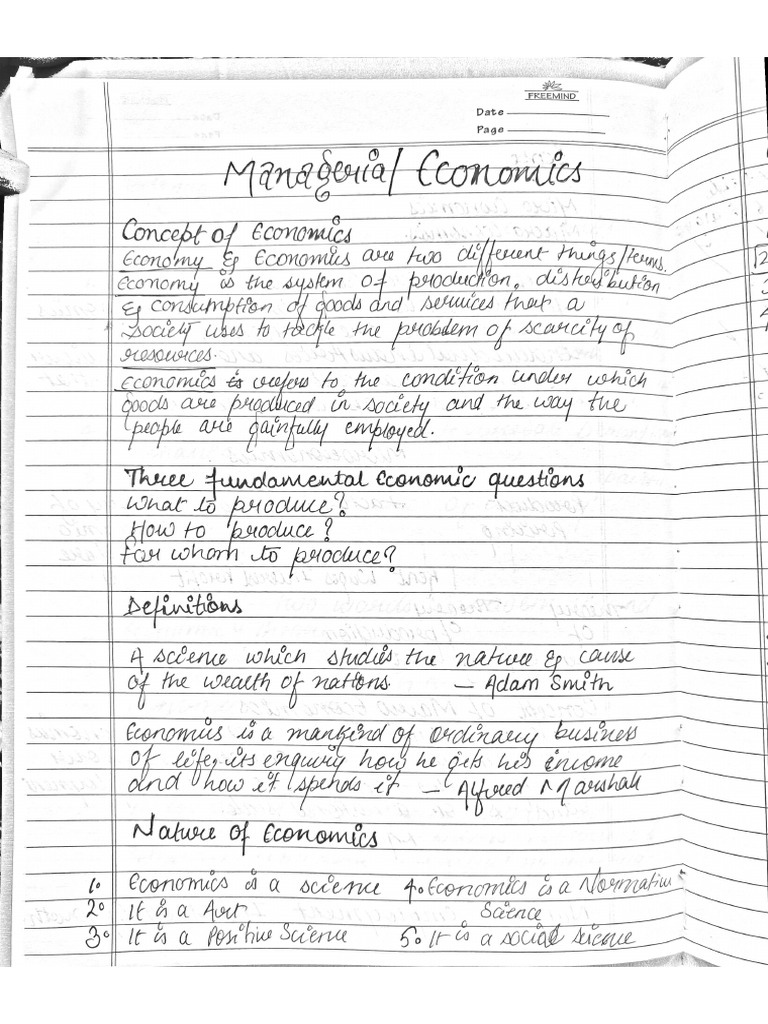 FREEMIND
Date
Page
Managerial Economics
Concept of Economics
Economy & Economics are two different things/terms.
Economy is the system of production, distribution
& consumption of goods and services that a
society uses to tackle the problem of scarcity of
resources.
Economics is refers to the condition under which
goods are produced in society and the way the
people are gainfully employed.
Three fundamental Economic questions
What to produce?
How to produce?
For whom to produce?
Definitions
A science which studies the nature & cause
of the wealth of nations. — Adam Smith
Economics is a mankind of ordinary business
of life, its enquiry how he gets his income
and how it spends it — Alfred Marshall
Nature of Economics
1. Economics is a science 4. Economics is a Normative
2. It is a Art Science
3. It is a Positive Science 5. It is a social science